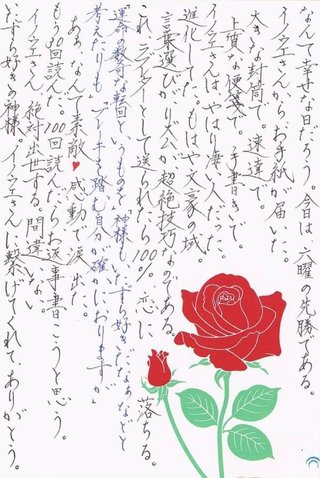 なんて幸せな日だろう。今日は六曜の先勝である。
イノウエさんから、お手紙が届いた。
大きな封筒で。速達で。
上質な便箋で。手書きで。
イノウエさんはやはり凄い人だった。
進化してた。もはや文豪の域。
言葉選びが超絶技巧なのである。
これ、ラブレターとして送られたら100%恋に落ちる。
「運命の数奇な転回というものは、神様もいたずら好きだなぁなどと
考えたりも」「ブレーキを踏む自分が確かにおりますが」
ああ、なんて素敵♥感動で涙出た。
もう30回読んだ。100回読んだらお返事書こうと思う。
イノウエさん、絶対出世する。間違いない。
いたずら好きの神様。イノウエさんに繋げてくれて、ありがとう。